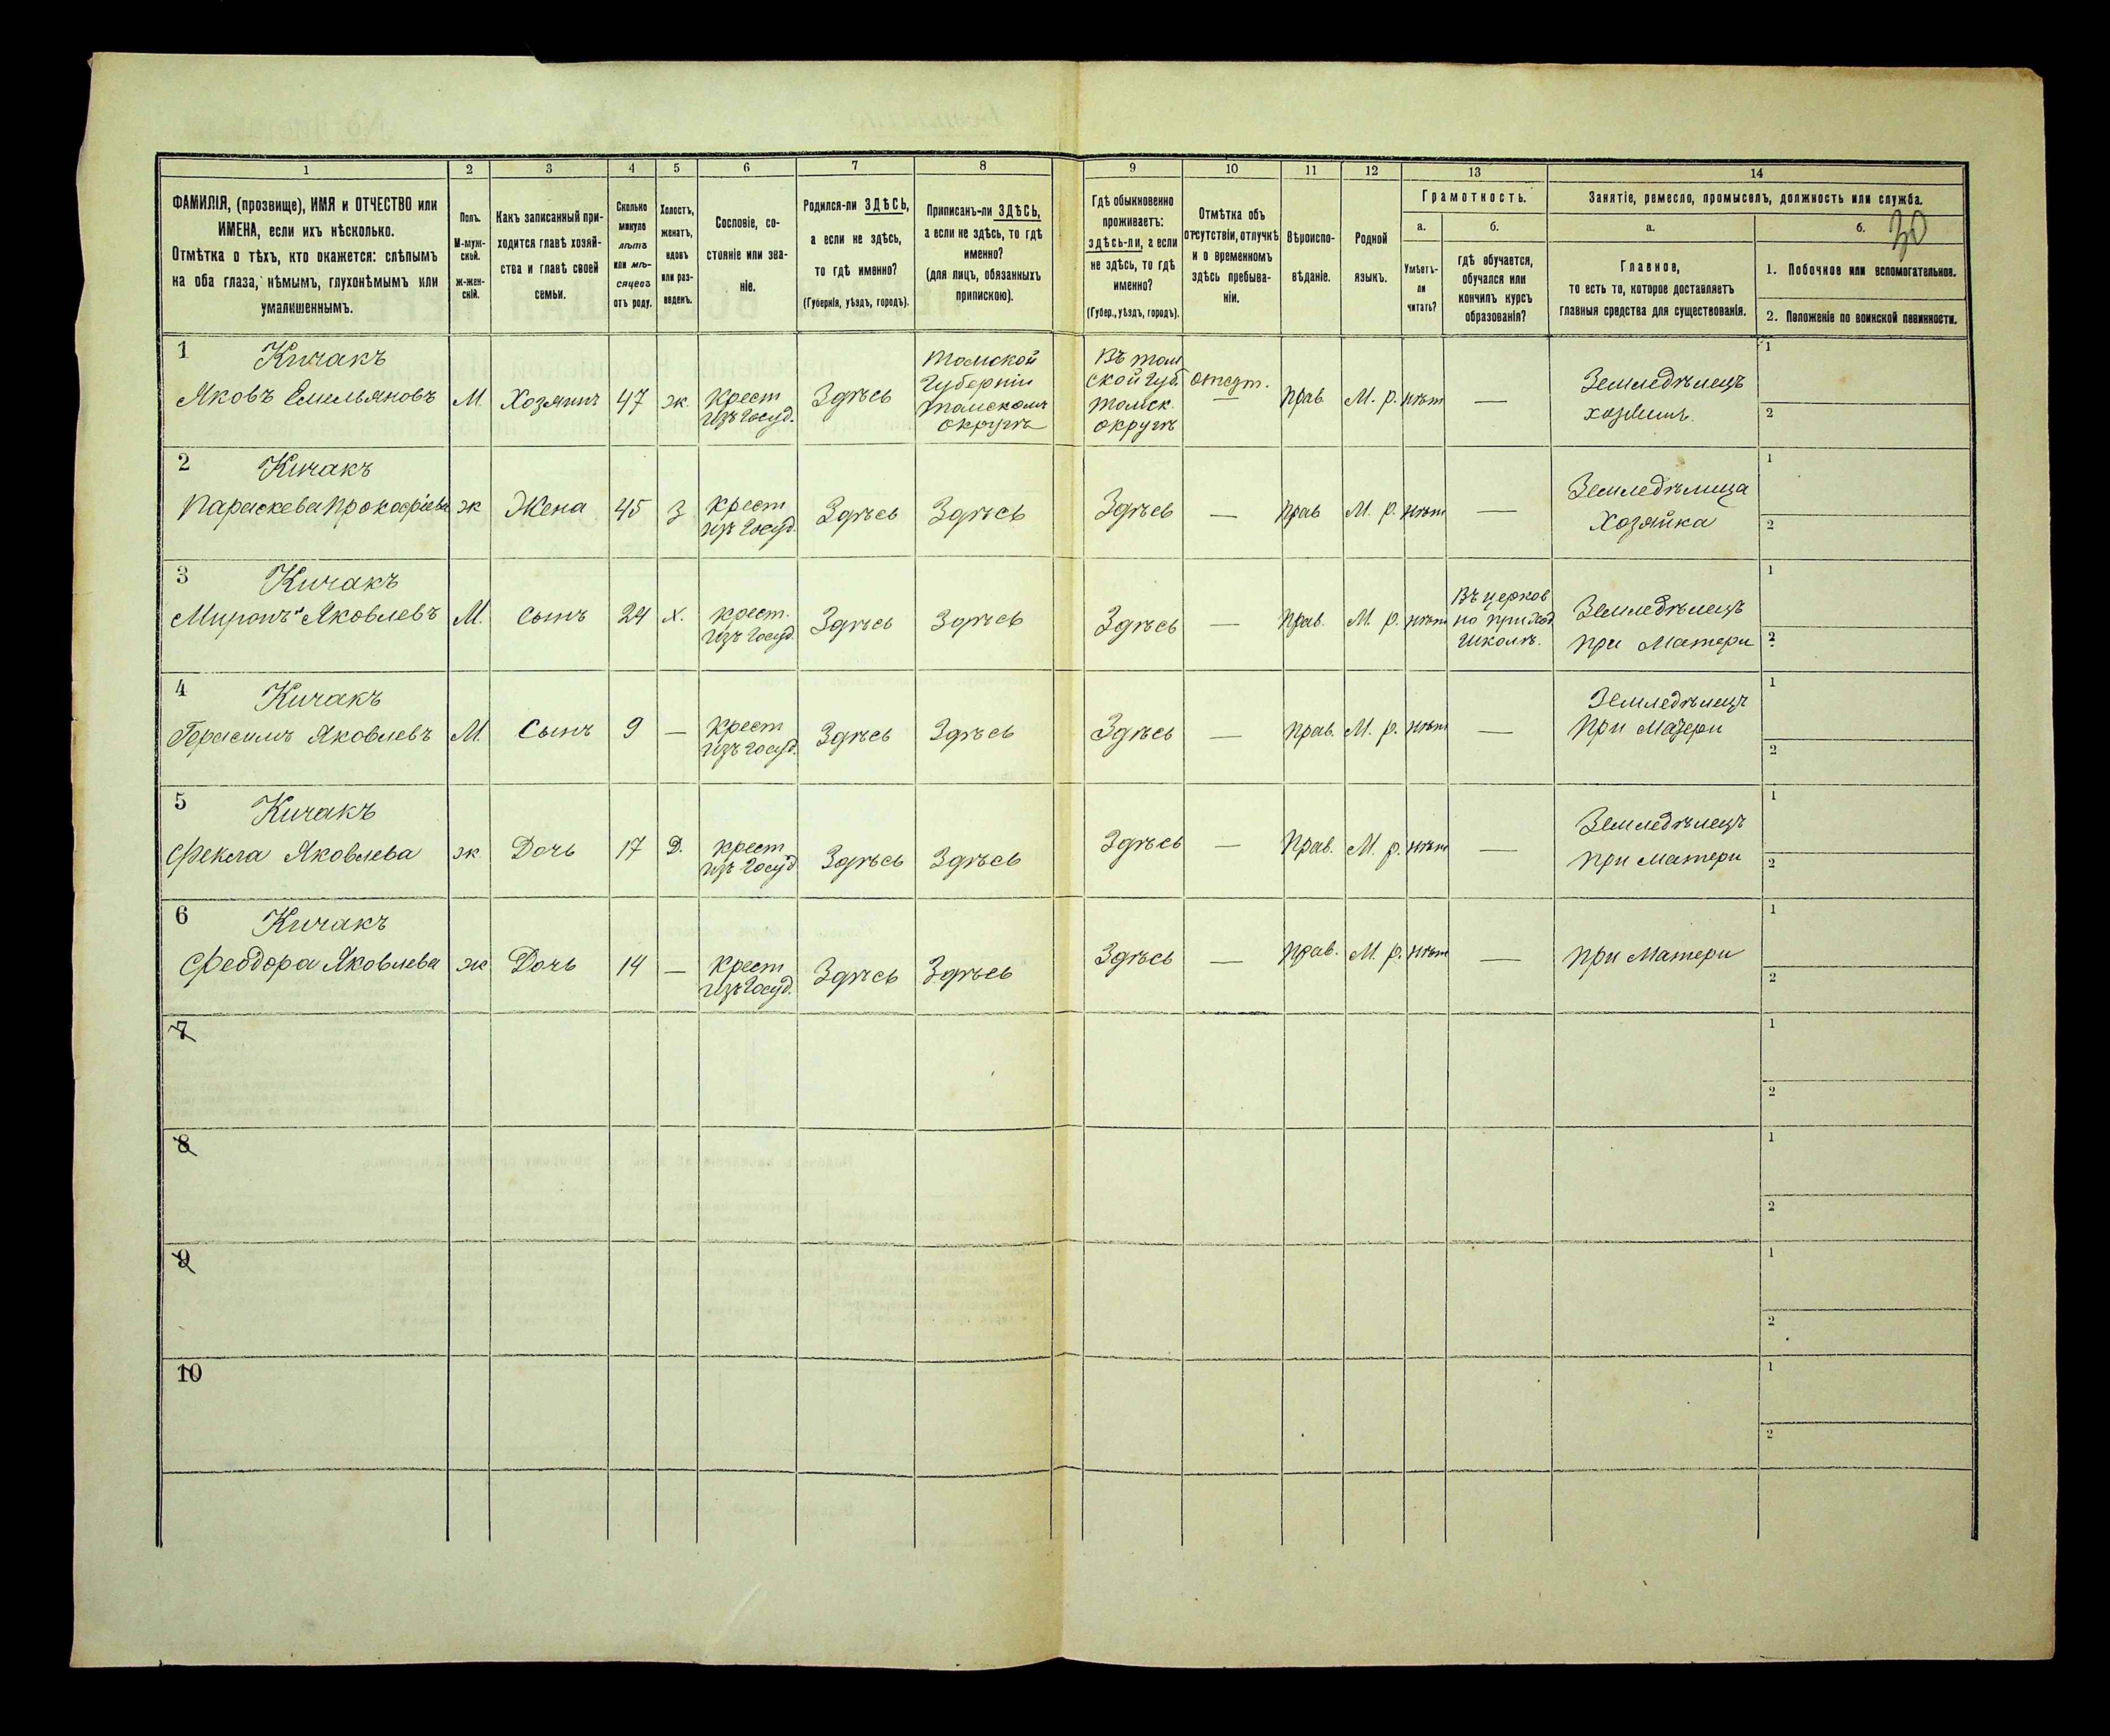 1 2 3 4 5 6 7 8 9 10 11 12 13 14
ФАМИЛІЯ, (прозвище), ИМЯ и ОТЧЕСТВО или
ИМЕНА, если ихъ нѣсколько.
Отмѣтка о тѣхъ, кто окажется: слѣпымъ
на оба глаза, нѣмымъ, глухонѣмымъ или
умалишеннымъ.
Полъ.
М-муж-
ской.
ж-жен-
скій.
Какъ записанный при-
ходится главѣ хозяй-
ства и главѣ своей
семьи.
Сколько
минуло
лѣтъ
или мѣ-
сяцевъ
отъ роду.
Холостъ,
женатъ,
вдовъ
или раз-
веденъ.
Сословіе, со-
стояніе или зва-
ніе.
Родился-ли ЗДѢСЬ,
а если не здѣсь,
то гдѣ именно?
(Губернія, уѣздъ, городъ).
Приписанъ-ли ЗДѢСЬ,
а если не здѣсь, то гдѣ
именно?
(для лицъ, обязанныхъ
припискою).
Гдѣ обыкновенно
проживаетъ:
здѣсь-ли, а если
не здѣсь, то гдѣ
именно?
(Губер., уѣздъ, городъ).
Отмѣтка объ
отсутствіи, отлучкѣ
и о временномъ
здѣсь пребыва-
ніи.
Вѣроиспо-
вѣданіе.
Родной
языкъ.
Грамотность.
а.
Умѣетъ-
ли
читать?
б.
гдѣ обучается,
обучался или
кончилъ курсъ
образованія?
Занятіе, ремесло, промыселъ, должность или служба.
а.
Главное,
то есть то, которое доставляетъ
главныя средства для существованія.
б. 30
1. Побочное или вспомогательное.
2. Положеніе по воинской повинности.
1 Кичакъ
Яковъ Емельяновъ
М. Хозяинъ 47 ж.
Крест
изъ Госуд.
Здѣсь
Томской
Губерніи
Томскомъ
округѣ
Въ Том
ской Губ.
Томск.
округѣ
отсут.
—
Прав. М. р. нѣт —
Земледѣлецъ
хозяинъ.
1
2
2 Кичакъ
Параскева Прокофіева
ж Жена 45 з
Крест
изъ Госуд.
Здѣсь Здѣсь Здѣсь — Прав М. р. нѣт —
Земледѣлица
Хозяйка
1
2
3 Кичакъ
Миронъ Яковлевъ
М. Сынъ 24 х.
Крест.
изъ Госуд.
Здѣсь Здѣсь Здѣсь — Прав. М. р. нѣт
Въ церков
но приход
школѣ.
Земледѣлецъ
при Матери
1
2
4 Кичакъ
Герасимъ Яковлевъ
М. Сынъ 9 —
Крест
изъ Госуд.
Здѣсь Здѣсь Здѣсь — Прав. М. р. нѣт —
Земледѣлецъ
При Матери
1
2
5 Кичакъ
Фекла Яковлева
ж Дочь 17 Д.
Крест
изъ Госуд
Здѣсь Здѣсь Здѣсь — Прав. М. р. нѣт —
Земледѣлецъ
При Матери
1
2
6 Кичакъ
Феодора Яковлева
ж Дочь 14 —
Крест
изъ Госуд.
Здѣсь Здѣсь Здѣсь — Прав. М. р. нѣт —
При Матери
1
2
7
1
2
8
1
2
9
1
2
10
1
2